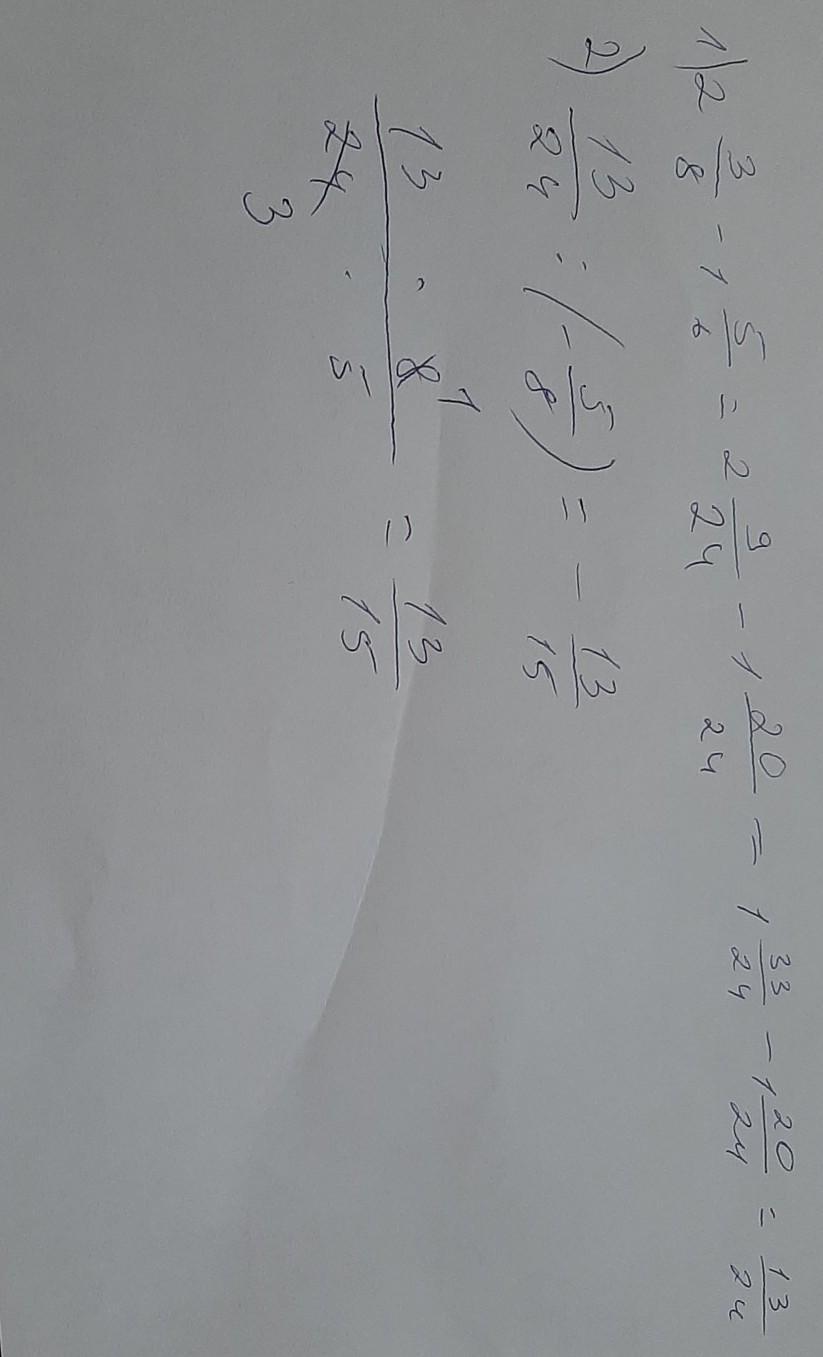 1) 2 3/8 - 1 5/6 = 2 9/24 - 1 20/24 = 1 33/24 - 1 20/24 = 13/24
2) 13/24 : (- 5/8) = - 13/15
13 · 8 1 / 24 3 · 5 = 13/15